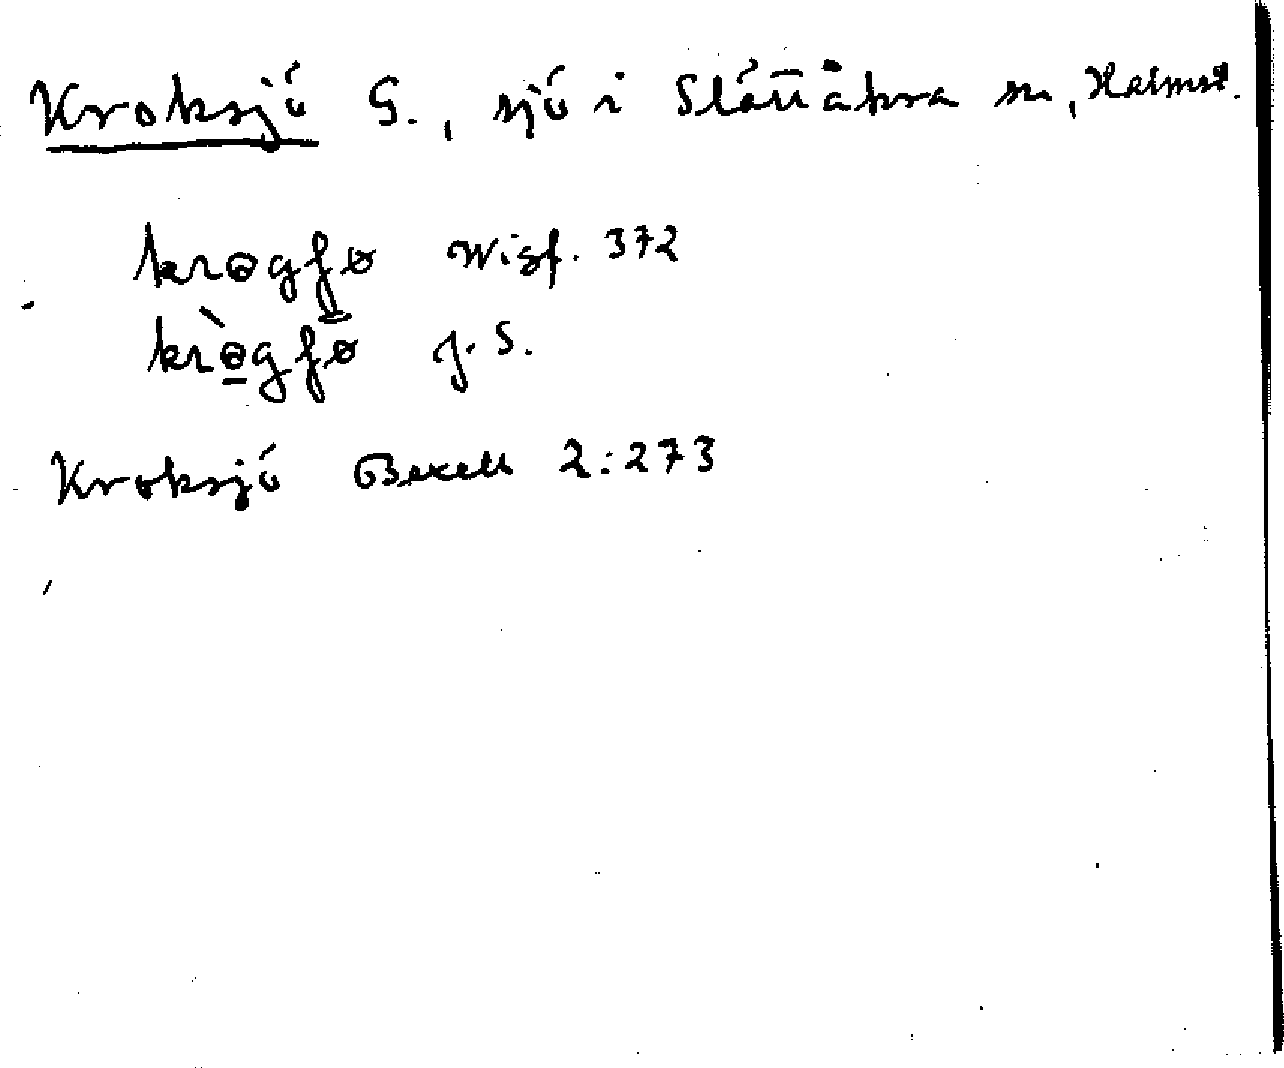 Kroksjö S., sjö i Slättåkra sn, Halmst.
krogʃø Wisf. 372
krògʃø J. S.
Kroksjö Bexell 2:273